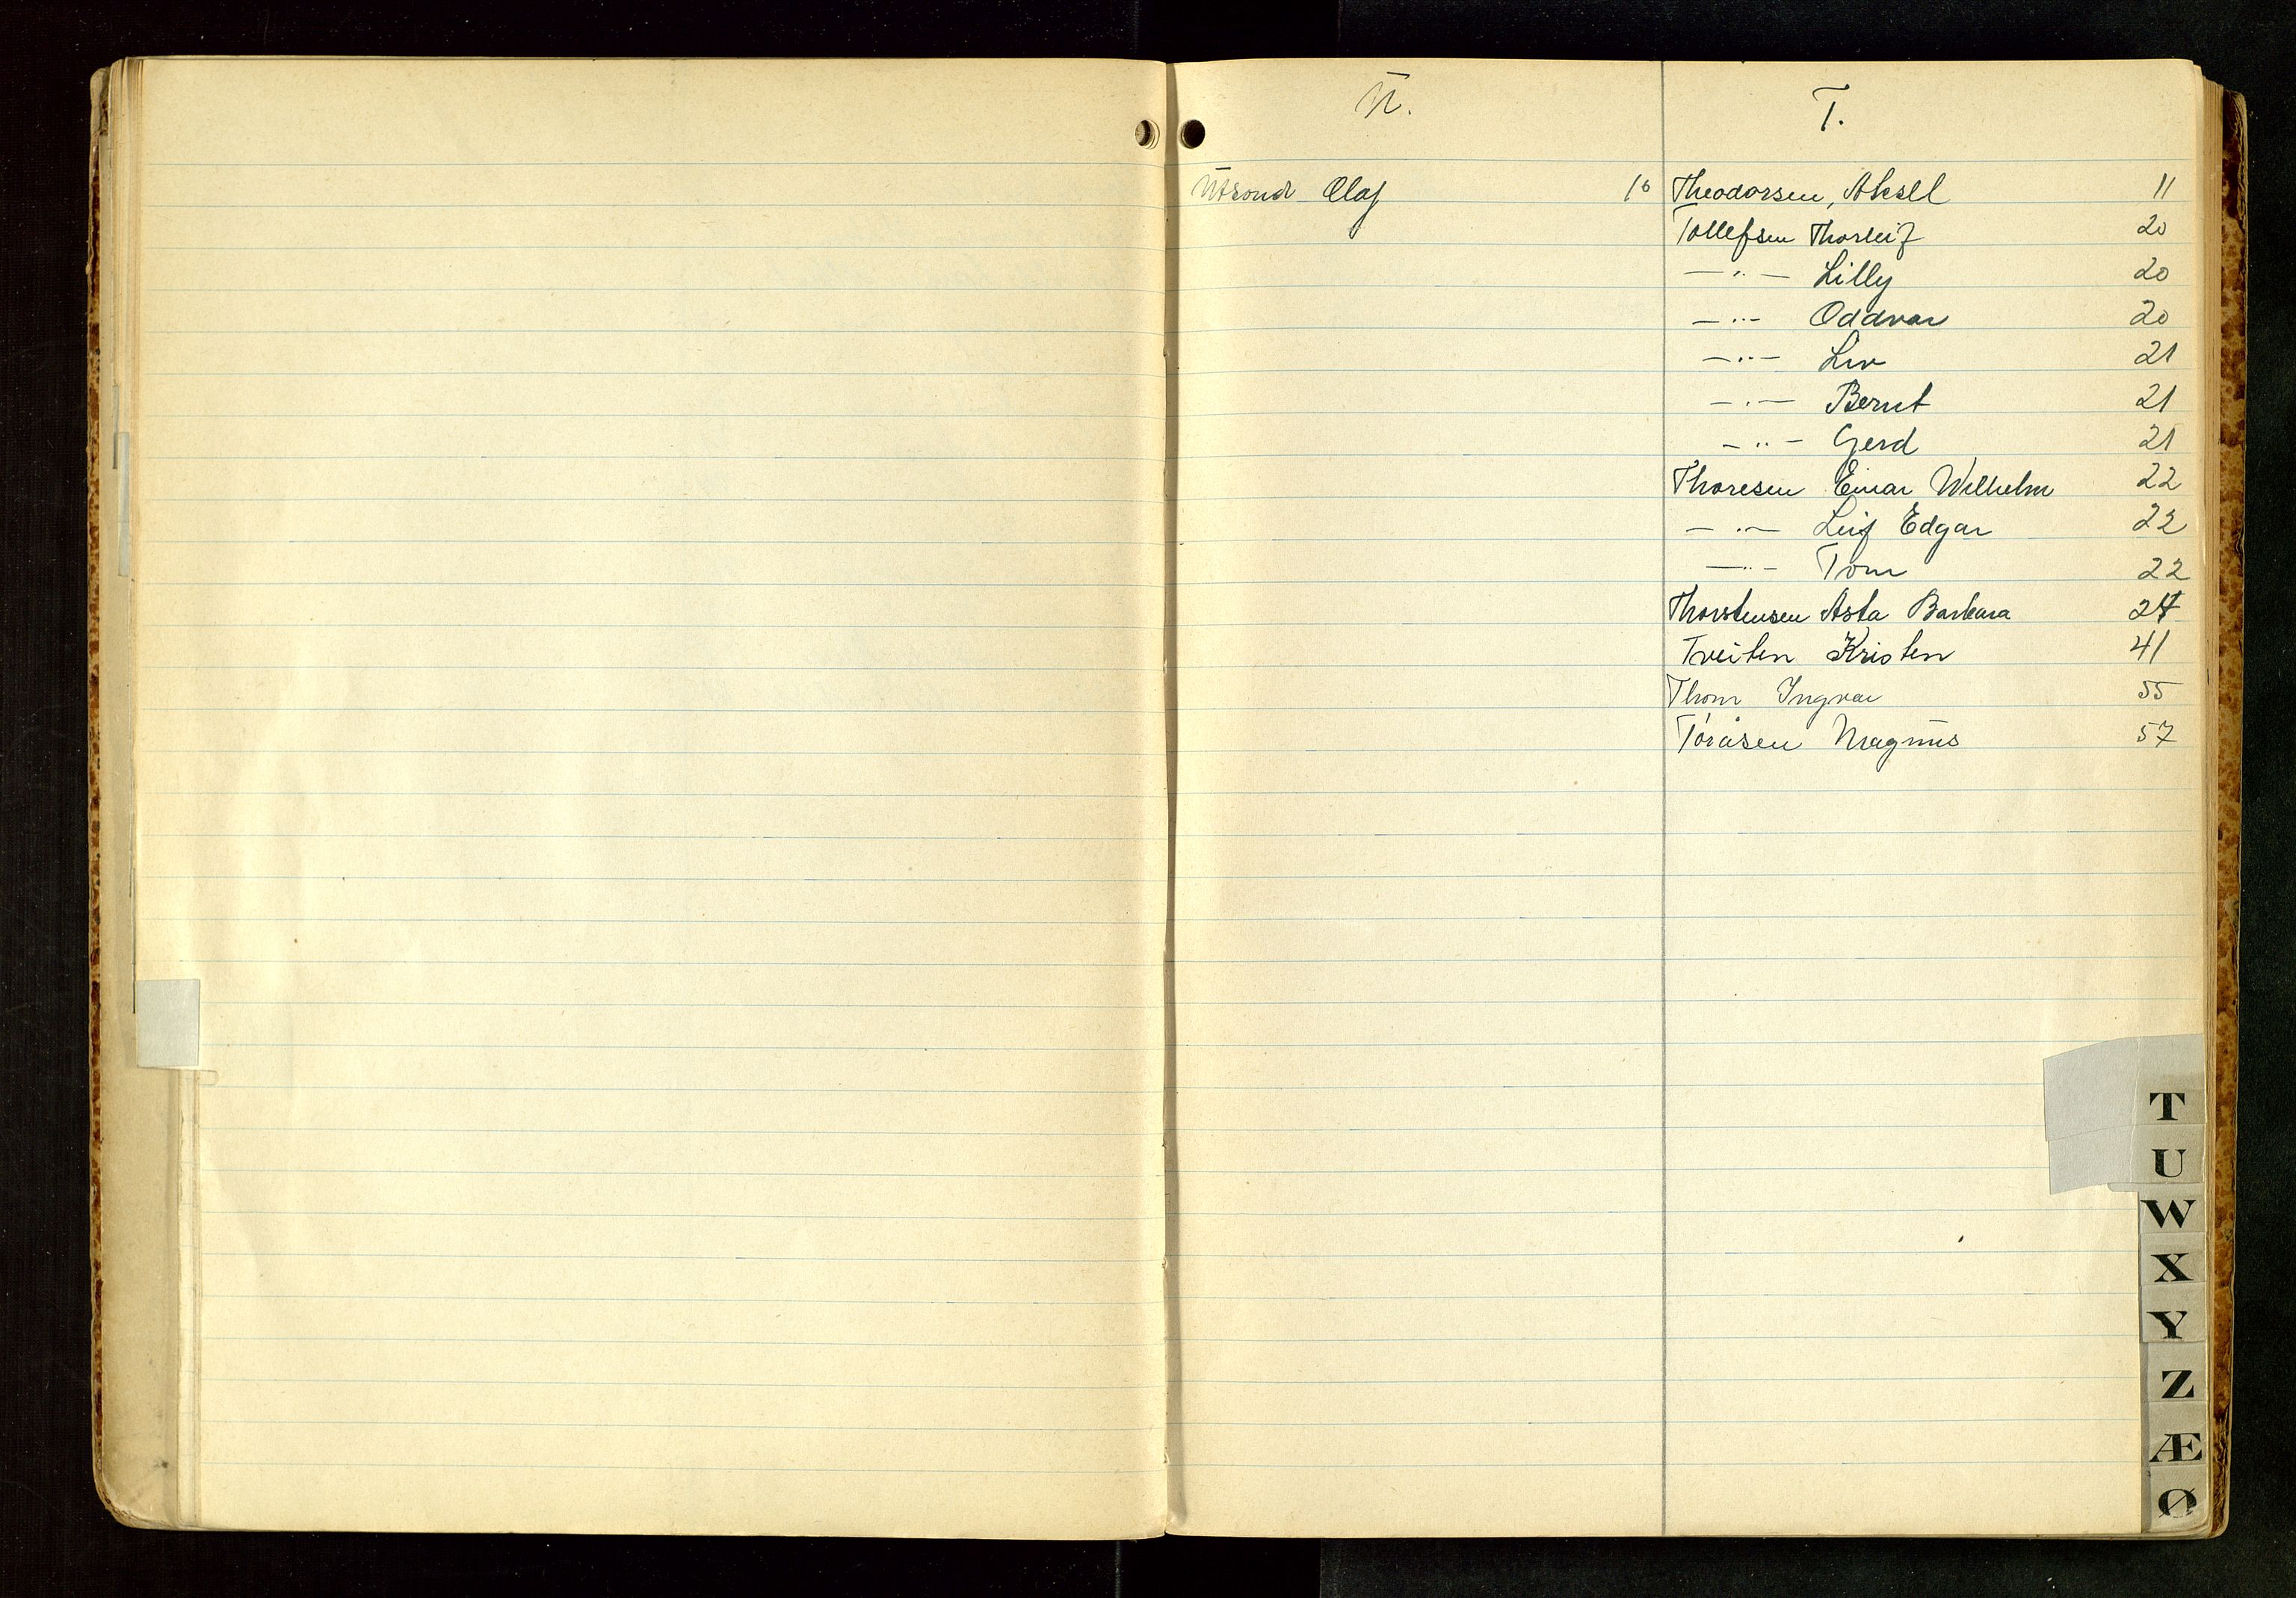 U.
Utsond Olaf 10
T.
Theodorsen, Aksel 11
Tollefsen Thorleif 20
— " — Lilly 20
— " — Oddvar 20
— " — Liv 21
— " — Bernt 21
— " — Gerd 21
Thoresen Einar Wilhelm 22
— " — Leif Edgar 22
— " — Tom 22
Thorstensen Asta Barbara 24
Tveiten Kristen 41
Thom Ingvar 55
Toråsen Magnus 57
T
U
W
X
Y
Z
Æ
Ø